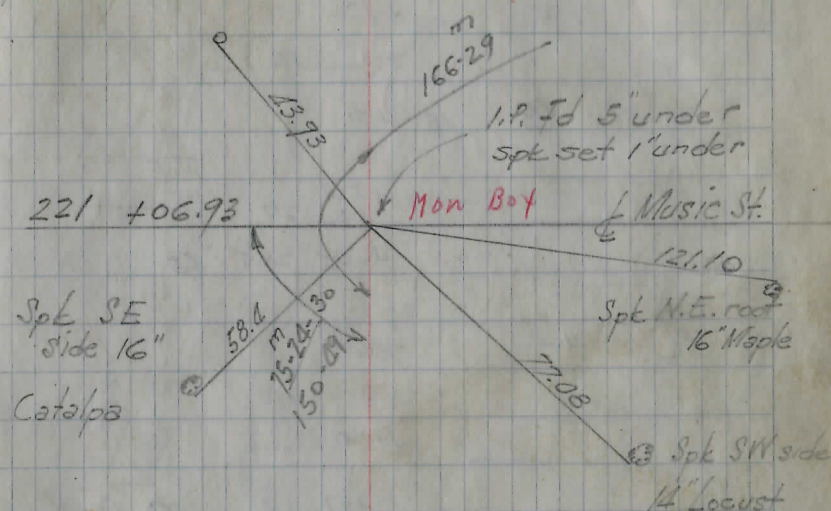 m
166-29
43.93
I.P. Fd 5" under
Spk set 1" under
221 +06.93
Mon Box
℄ Music St.
121.10
Spk N.E. root
16" Maple
Spk SE
side 16"
Catalpa
58.4
m
75-24-30
150-49
77.08
Spk SW side
14" Locust